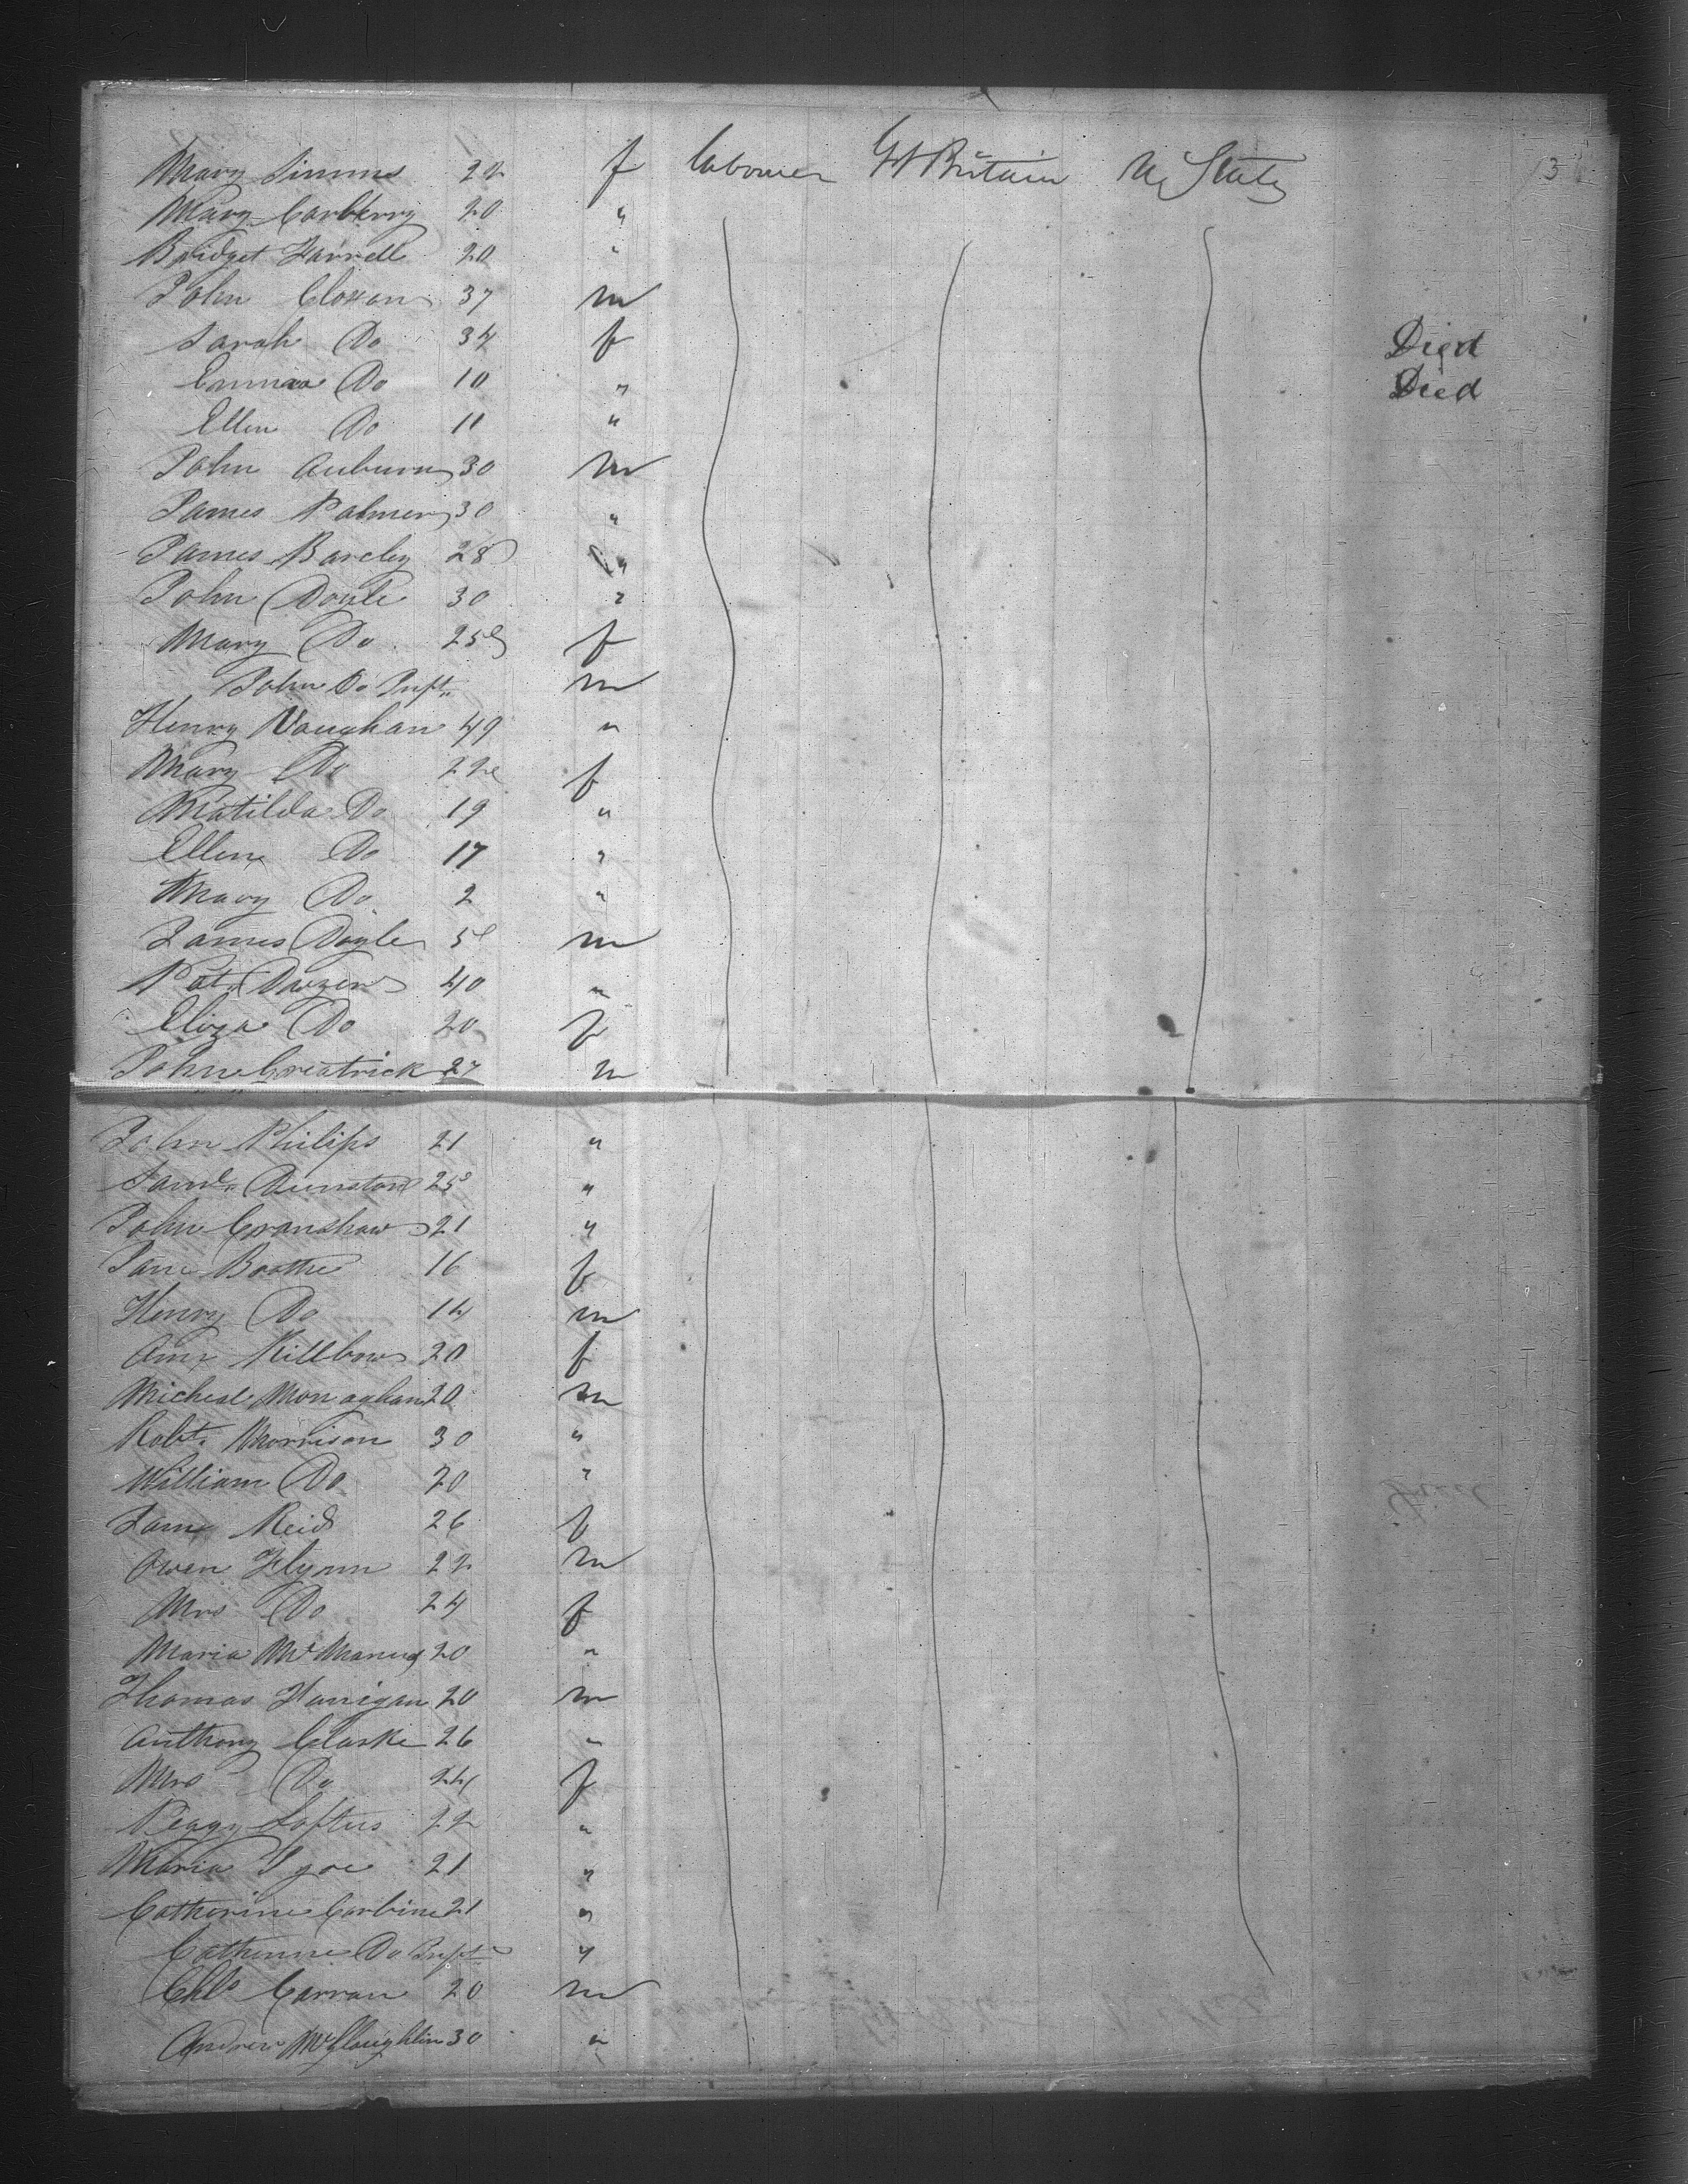 Mary Simms 22 f labourer Gt Britain U States 13
Mary Carberry 20 "
Bridget Farrell 20 "
John Cloxan 37 m
Sarah Do 34 f Died
Emma Do 10 " Died
Ellen Do 11 "
John Auburn 30 m
James Palmer 30 "
James Barcley 28 "
John Doyle 30 "
Mary Do 25 f
John Do Inft m
Henry Vaughan 49 "
Mary Do 22 f
Matilda Do 19 "
Ellen Do 17 "
Mary Do 2 "
James Doyle 5 m
Pat. 40 "
Eliza Do 20 f
John Greatrick 27 m
John Philips 21 "
Saml. Dunstan 25 "
John Cranshaw 21 "
Jane Boothe 16 f
Henry Do 14 m
Ann Killbow 20 f
Micheal Monaghan 20 m
Robt. Morrison 30 "
William Do 20 "
Jane Reid 26 f
Owen Flynn 22 m
Mrs Do 24 f
Maria McManus 20 "
Thomas Hanigan 20 m
Anthony Clarke 26 "
Mrs Do 24 f
Peggy Loftus 22 "
Maria 21 "
Catherine Corbine 21 "
Catherine Do Inft "
Chls Carran 20 m
Andrew McGlaughlin 30 "